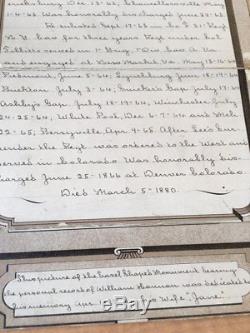 ricksburg Dec 13-62, Chancellorsville May
1-4-63. Was honorably discharged June 23-63.
He enlisted Sept. 19-63 in Co
N.Y. Cav for three years Regt under Col.
Tibbits served in 1st Brig. 1 Div. 8 A.C. W. Va
and engaged at New Market Va. May 15-16-64
Piedmont, June 5-64; Lynchburg June 18-19-64
Purcellton July 3-64; Snickers Gap July 17-64
Ashby's Gap July 18-19-64, Winchester July
24-25-64; White Post, Dec 6-7-64 and Mch
22-65; Berryville Apr 4-65. After Lee's Sur-
render the Regt was ordered to the West and
served in Colorado Was honorably dis-
charged June 25-1866 at Denver Colorado.
Died March 5-1880.
This picture of the Barrel Shaped Monument bearing
the personal record of William Harman was dedicated
to his memory Apr by his Wife "Jane".